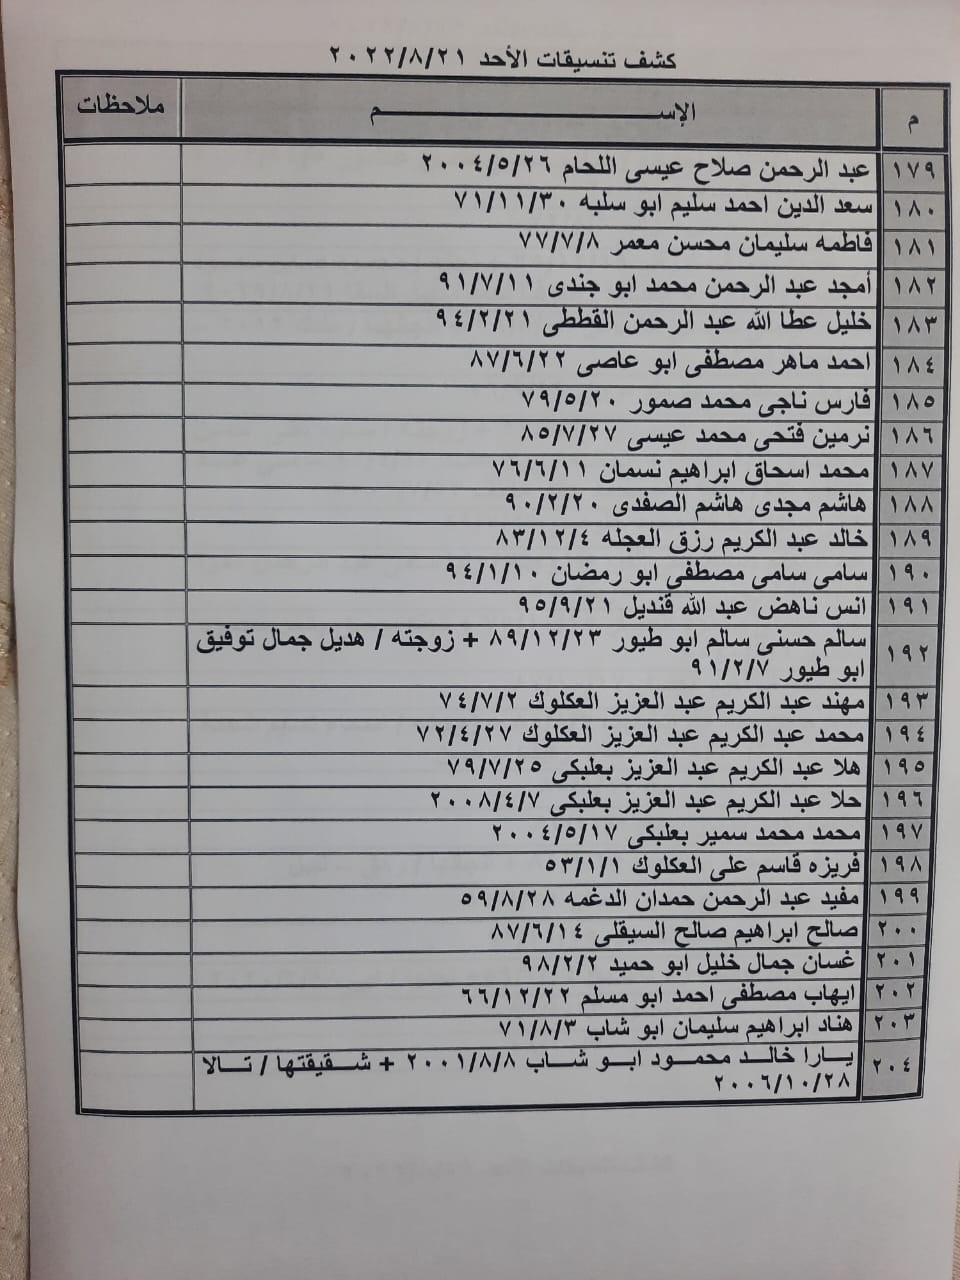 كشف تنسيقات الأحد ٢٠٢٢/٨/٢١
م الإســـــــم ملاحظات
١٧٩ عبد الرحمن صلاح عيسى اللحام ٢٠٠٤/٥/٢٦
١٨٠ سعد الدين احمد سليم ابو سلبه ٧١/١١/٣٠
١٨١ فاطمه سليمان محسن معمر ٧٧/٧/٨
١٨٢ أمجد عبد الرحمن محمد ابو جندى ٩١/٧/١١
١٨٣ خليل عطا الله عبد الرحمن القططى ٩٤/٢/٢١
١٨٤ احمد ماهر مصطفى ابو عاصى ٨٧/٦/٢٢
١٨٥ فارس ناجى محمد صمور ٧٩/٥/٢٠
١٨٦ نرمين فتحى محمد عيسى ٨٥/٧/٢٧
١٨٧ محمد اسحاق ابراهيم نسمان ٧٦/٦/١١
١٨٨ هاشم مجدى هاشم الصفدى ٩٠/٢/٢٠
١٨٩ خالد عبد الكريم رزق العجله ٨٣/١٢/٤
١٩٠ سامى سامى مصطفى ابو رمضان ٩٤/١/١٠
١٩١ انس ناهض عبد الله قنديل ٩٥/٩/٢١
١٩٢ سالم حسنى سالم ابو طيور ٨٩/١٢/٢٣ + زوجته / هديل جمال توفيق
ابو طيور ٩١/٢/٧
١٩٣ مهند عبد الكريم عبد العزيز العكلوك ٧٤/٧/٢
١٩٤ محمد عبد الكريم عبد العزيز العكلوك ٧٢/٤/٢٧
١٩٥ هلا عبد الكريم عبد العزيز بعلبكى ٧٩/٧/٢٥
١٩٦ حلا عبد الكريم عبد العزيز بعلبكى ٢٠٠٨/٤/٧
١٩٧ محمد محمد سمير بعلبكى ٢٠٠٤/٥/١٧
١٩٨ فريزه قاسم على العكلوك ٥٣/١/١
١٩٩ مفيد عبد الرحمن حمدان الدغمه ٥٩/٨/٢٨
٢٠٠ صالح ابراهيم صالح السيقلى ٨٧/٦/١٤
٢٠١ غسان جمال خليل ابو حميد ٩٨/٢/٢
٢٠٢ ايهاب مصطفى احمد ابو مسلم ٦٦/١٢/٢٢
٢٠٣ هناد ابراهيم سليمان ابو شاب ٧١/٨/٣
٢٠٤ يـارا خالـد محمـود ابـو شـاب ٢٠٠١/٨/٨ + شـقيقتها / تـالا
٢٠٠٦/١٠/٢٨